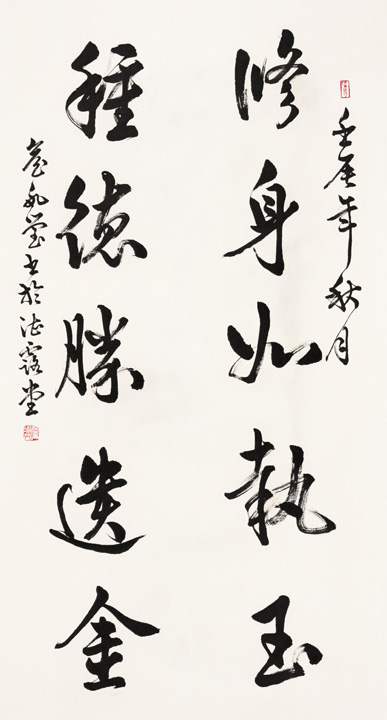 壬辰年秋月
修身如執玉
種德勝遺金
書於露堂